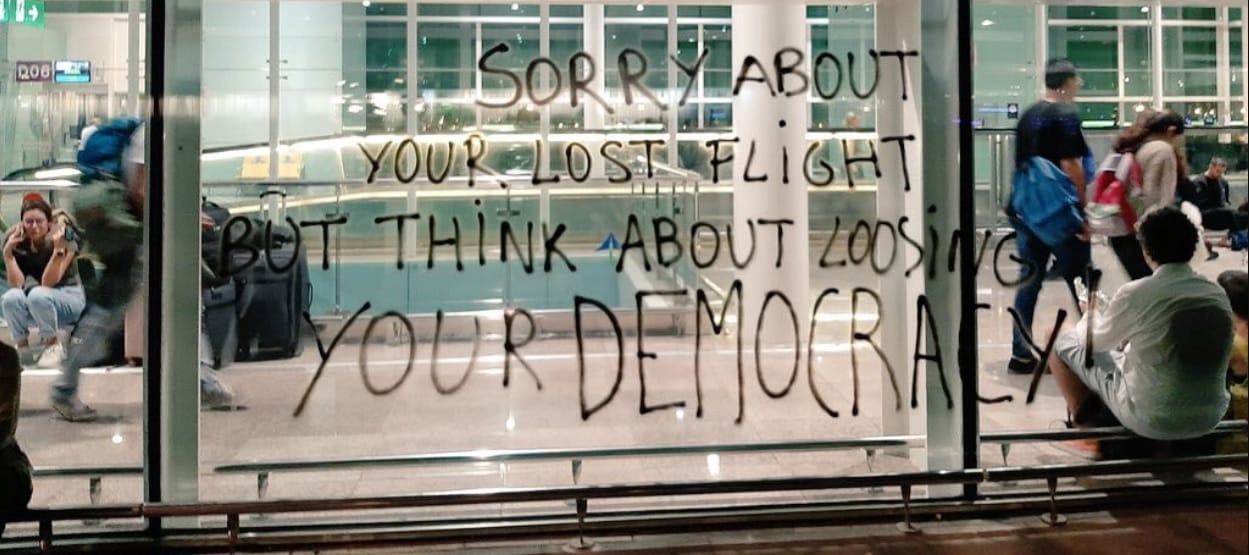 D06
SORRY ABOUT
YOUR LOST FLiGHT
BUT THiNK ABOUT LOOSiNG
YOUR DEMOCRACY!